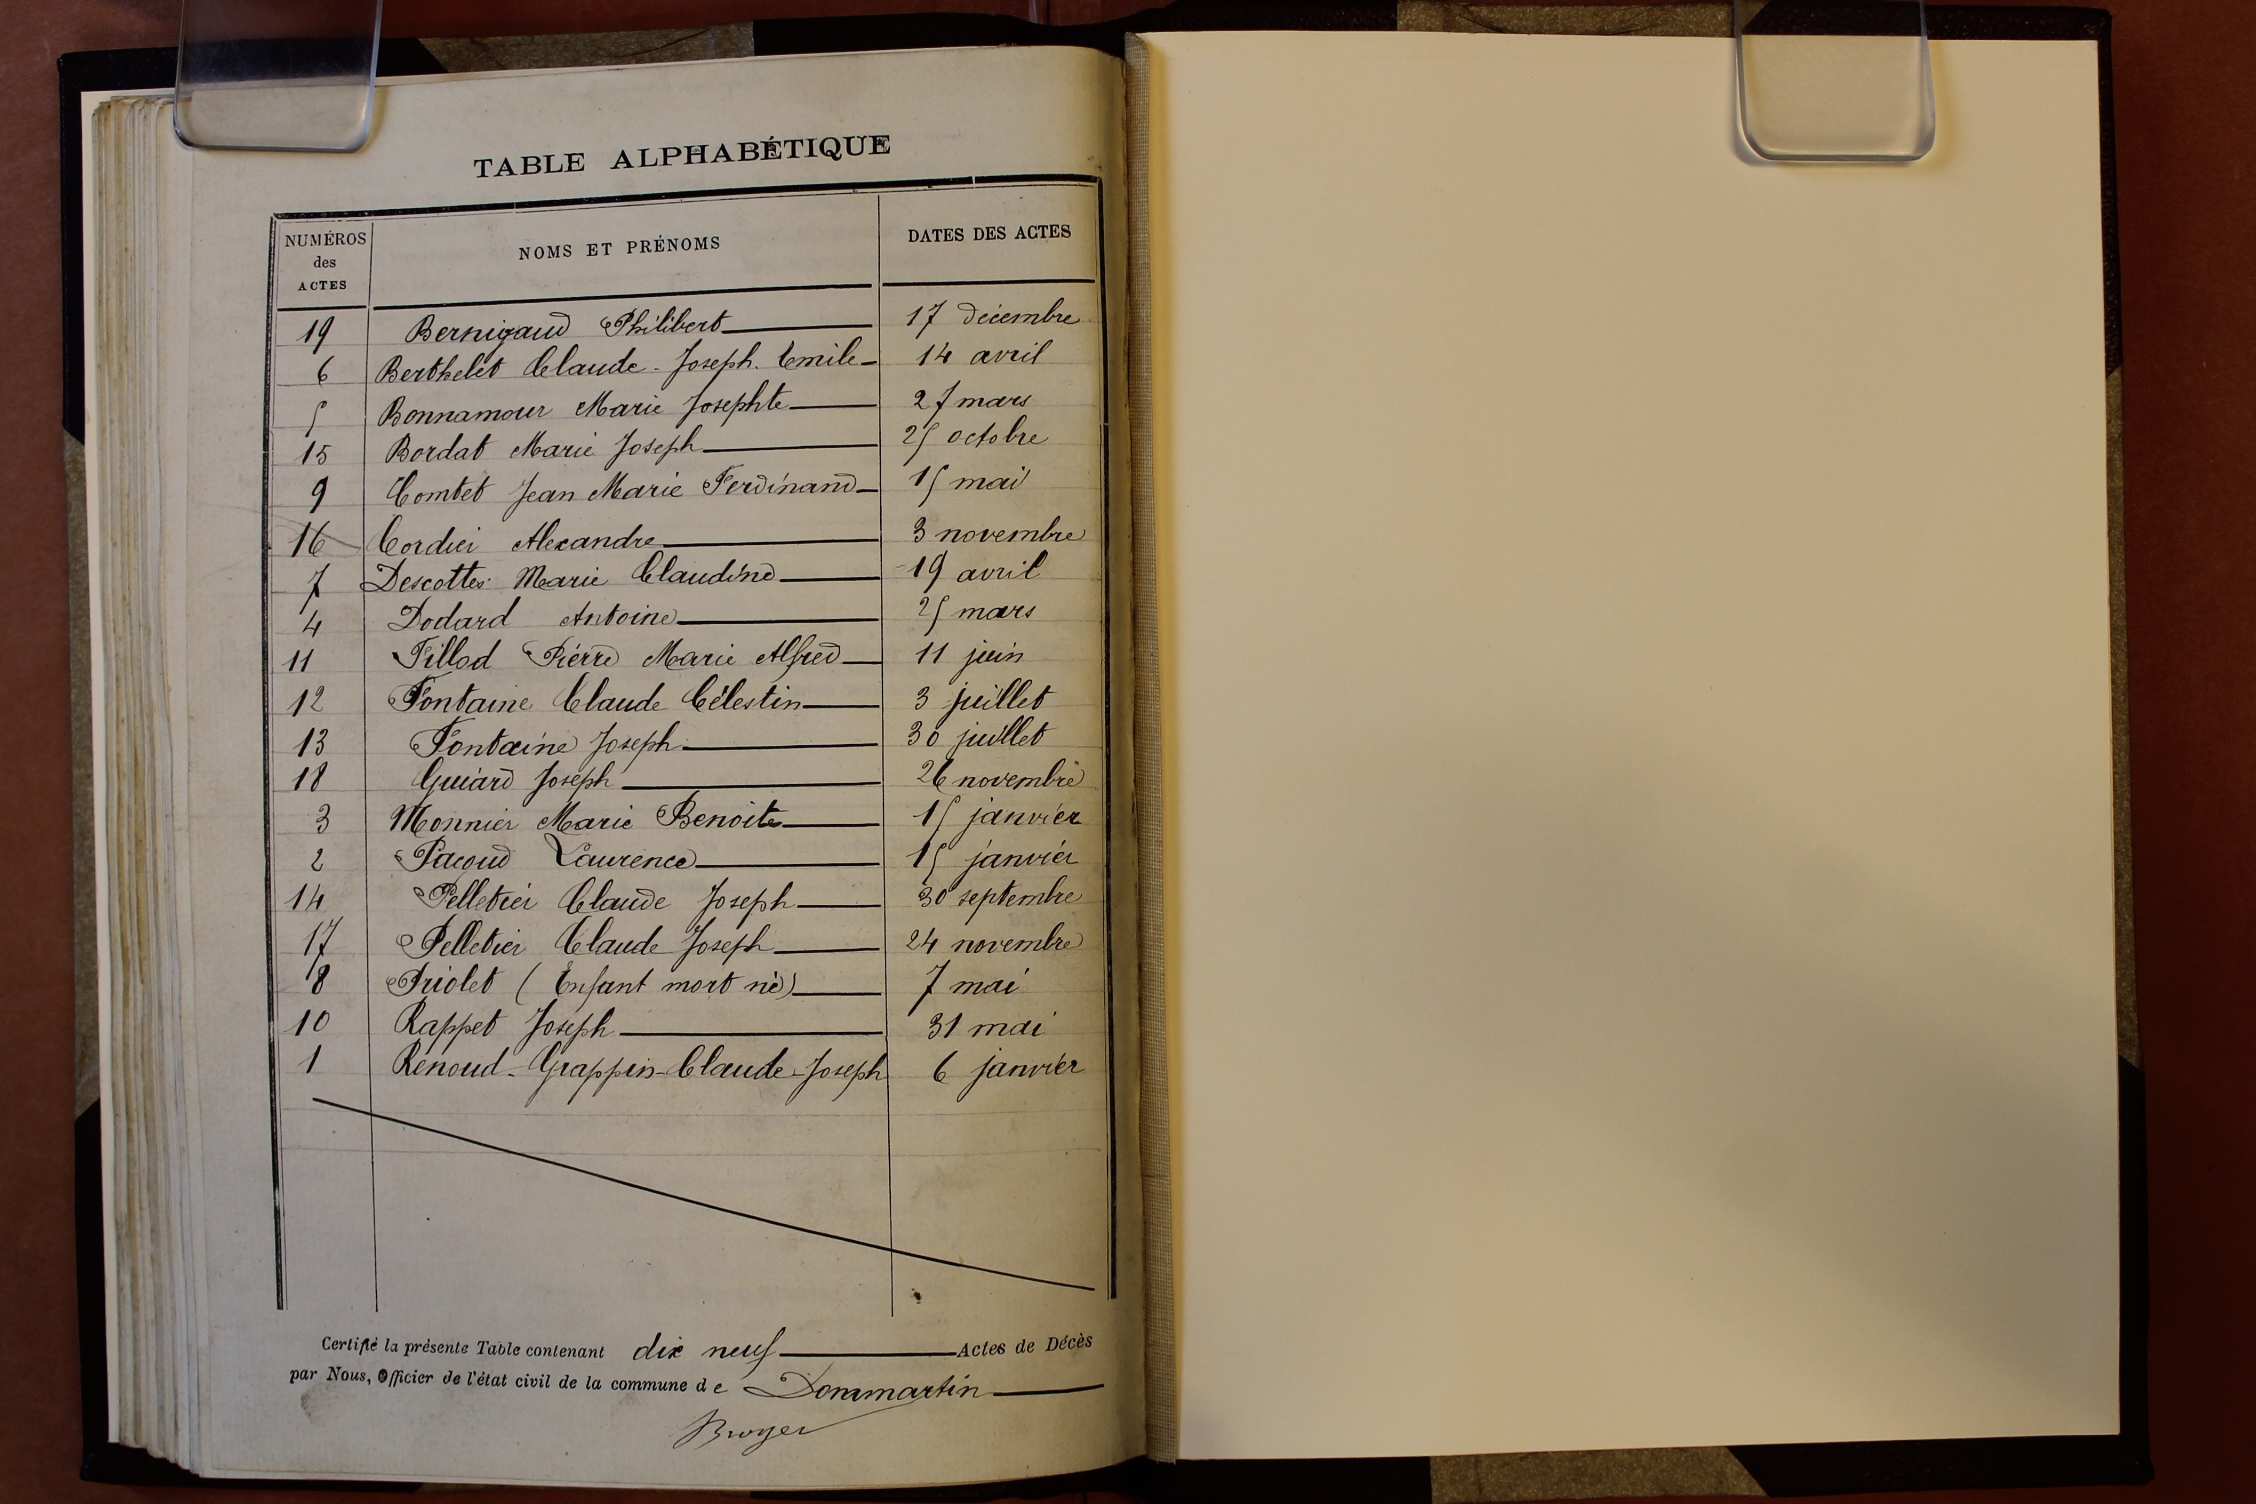 TABLE ALPHABÉTIQUE
NUMÉROS des ACTES NOMS ET PRÉNOMS DATES DES ACTES
19 Bernigaud Philibert 17 décembre
6 Berthelet Claude - Joseph. Emile 14 avril
5 Bonnamour Marie Josephte 27 mars
15 Bordat Marie Joseph 25 octobre
9 Comtet Jean Marie Ferdinand 15 mai
16 Cordier Alexandre 3 novembre
7 Descottes Marie Claudine 19 avril
4 Dodard Antoine 25 mars
11 Fillod Pierre Marie Alfred 11 juin
12 Fontaine Claude Célestin 3 juillet
13 Fontaine Joseph 30 juillet
18 Guiard Joseph 26 novembre
3 Monnier Marie Benoite 15 janvier
2 Pacoud Laurence 15 janvier
14 Pelletier Claude Joseph 30 septembre
17 Pelletier Claude Joseph 24 novembre
8 Priolet (Enfant mort né) 7 mai
10 Rappet Joseph 31 mai
1 Renoud-Grappin-Claude-Joseph 6 janvier
Certifié la présente Table contenant dix neuf Actes de Décès
par Nous, Officier de l'état civil de la commune de Dommartin
Broyer